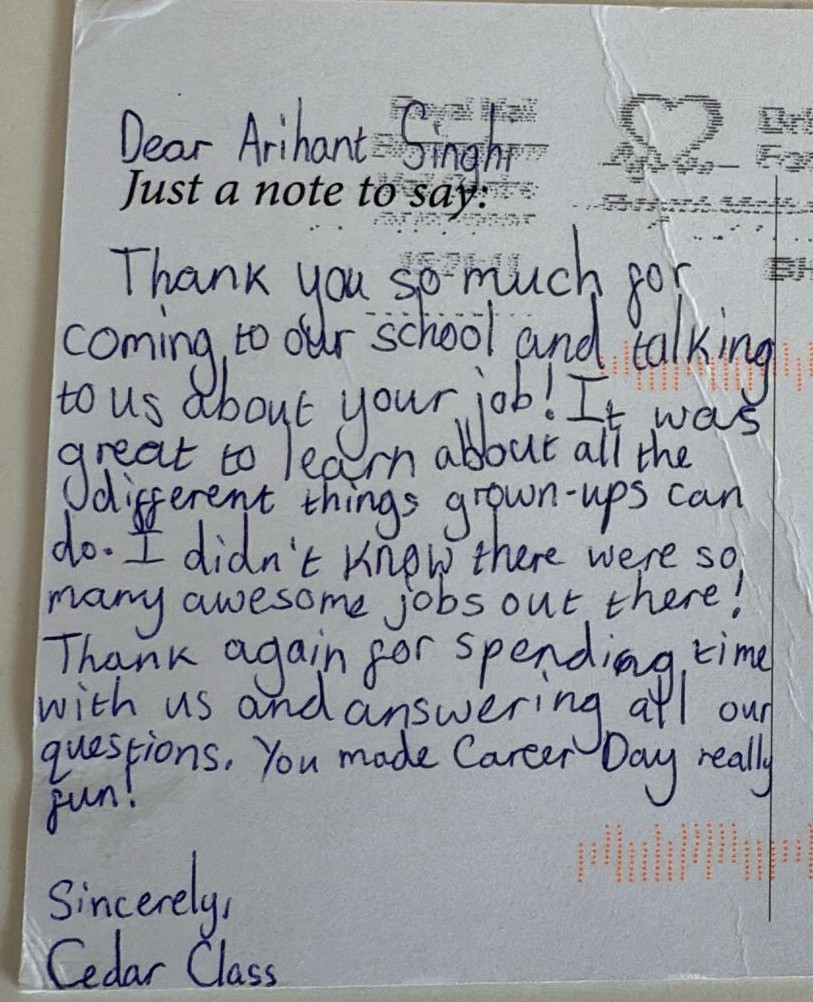 Dear Arihant Singhi
Just a note to say:
Thank you so much for
coming to our school and talking
to us about your job! It was
great to learn about all the
different things grown-ups can
do. I didn't know there were so
many awesome jobs out there!
Thank again for spending time
with us and answering all our
questions. You made Career Day really
fun!
Sincerely,
Cedar Class
Royal Mail